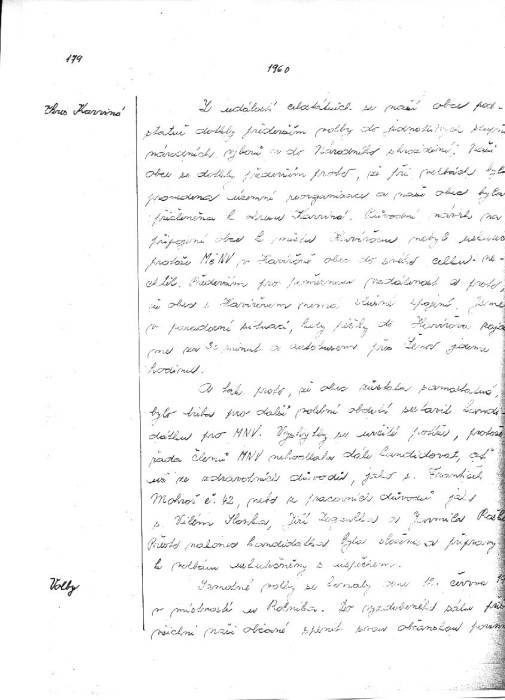 179
1960
Okres Karviná
Z událostí celostátních se naší obce pod-
statně dotkly především volby do jednotlivých stupňů
národních výborů a do Národního shromáždění. Naší
obce se dotkly především proto, že při volbách byla
provedena územní reorganisace a naše obec byla
přičleněna k okresu Karviná. Původní návrh na
připojení obce k městu Havířovu nebyl uskutečněn
protože MěNV v Havířově obec do svého celku ne-
chtěl. Především pro poměrnou vzdálenost a proto,
že obec s Havířovem nemá slušné spojení, jsme
v paradoxní situaci, kdy pěšky do Havířova
za 30 minut a autobusem přes jedeme
hodinu.
A tak proto, že obec zůstala samostatná,
bylo třeba pro další volební období sestavit kandi-
dátku pro MNV. Vyskytly se určité potíže, protože
řada členů MNV nehodlala dále kandidovat, ať
už ze zdravotních důvodů, jako s. František
Mokroš č. 42, nebo z pracovních důvodů jako
s. Vilém Sloska, Jiří a Jarmila
Přesto nakonec kandidátka byla složena a přípravy
k volbám uskutečněny s úspěchem.
Volby
Samotné volby se konaly dne 12. června
v místnosti u Rotníka. Do vyzdobeného sálu
všichni naši občané splnit svou občanskou